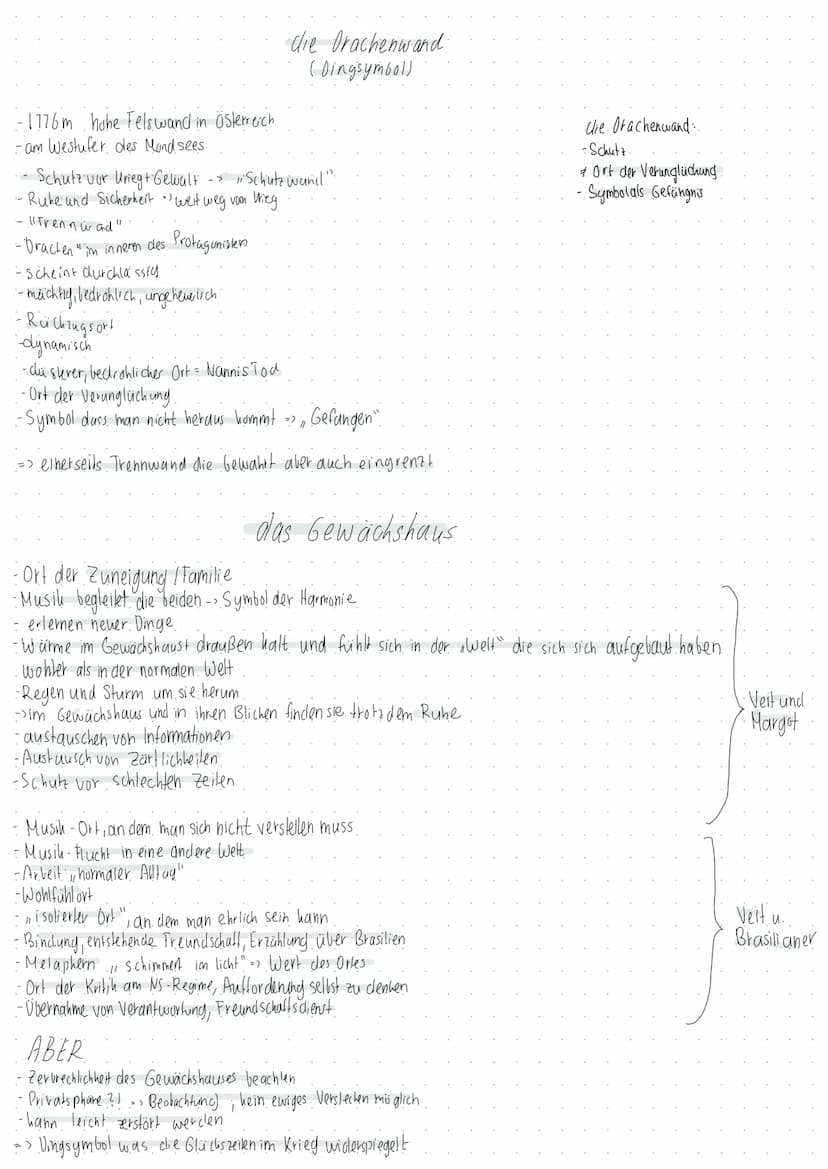 die Drachenwand
(Dingsymbol)
- 1776m hohe Felswand in Österreich
- am Westufer des Mondsees
- Schutz vor Krieg+Gewalt -> "Schutzwand"
- Ruhe und Sicherheit -> weit weg vom Krieg
- "Trennwad"
- "Drachen" im inneren des Protagonisten
- scheint durchlässig
- mächtig, bedrohlich, ungeheuerlich
- Rückzugsort
- dynamisch
- düsterer, bedrohlicher Ort = Nannis Tod
- Ort der Verunglückung
- Symbol dass man nicht heraus kommt => "Gefangen"
=> einerseits Trennwand die bewahrt aber auch eingrenzt
die Drachenwand:
- Schutz
≠ Ort der Verunglückung
- Symbol als Gefängnis
das Gewächshaus
- Ort der Zuneigung / Familie
- Musik begleitet die beiden -> Symbol der Harmonie
- erlernen neuer Dinge
- Wärme im Gewächshaus+ draußen kalt und fühlt sich in der "Welt" die sich sich aufgebaut haben
wohler als in der normalen Welt
- Regen und Sturm um sie herum
-> im Gewächshaus und in ihren Blicken finden sie trotzdem Ruhe
- austauschen von Informationen
- Austausch von Zärtlichkeiten
- Schutz vor schlechten Zeiten
Veit und
Margot
- Musik - Ort, an dem man sich nicht verstellen muss
- Musik - Flucht in eine andere Welt
- Arbeit "normaler Alltag"
- Wohlfühlort
- "isolierter Ort", an dem man ehrlich sein kann
- Bindung, entstehende Freundschaft, Erzählung über Brasilien
- Metaphern "schimmert im licht" => Wert des Ortes
- Ort der Kritik am NS-Regime, Aufforderung selbst zu denken
- Übernahme von Verantwortung, Freundschaftsdienst
Veit u.
Brasilianer
ABER
- Zerbrechlichkeit des Gewächshauses beachten
- Privatsphäre?! => Beobachtung, kein ewiges Verstecken möglich
- kann leicht zerstört werden
=> Dingsymbol was die Glückszeiten im Krieg widerspiegelt